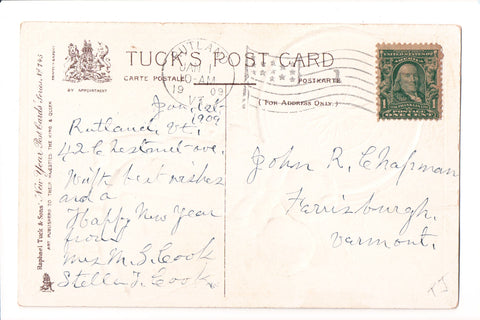 TUCK'S POST CARD
CARTE POSTALE
POSTKARTE
(FOR ADDRESS ONLY.)
BY APPOINTMENT
Raphael Tuck & Sons' "New Year" Post Cards Series Nº 745
ART PUBLISHERS TO THEIR MAJESTIES THE KING & QUEEN
RUTLAND
JAN 1
10-AM
1909
VT.
1 1
ONE CENT
Jan. 1st.
1909
Rutland, Vt.
42 Chestnut-ave.
With best wishes
and a
Happy New Year
from
Mrs M. G. Cook
Stella J. Cook
John R. Chapman
Ferrisburgh,
Vermont.